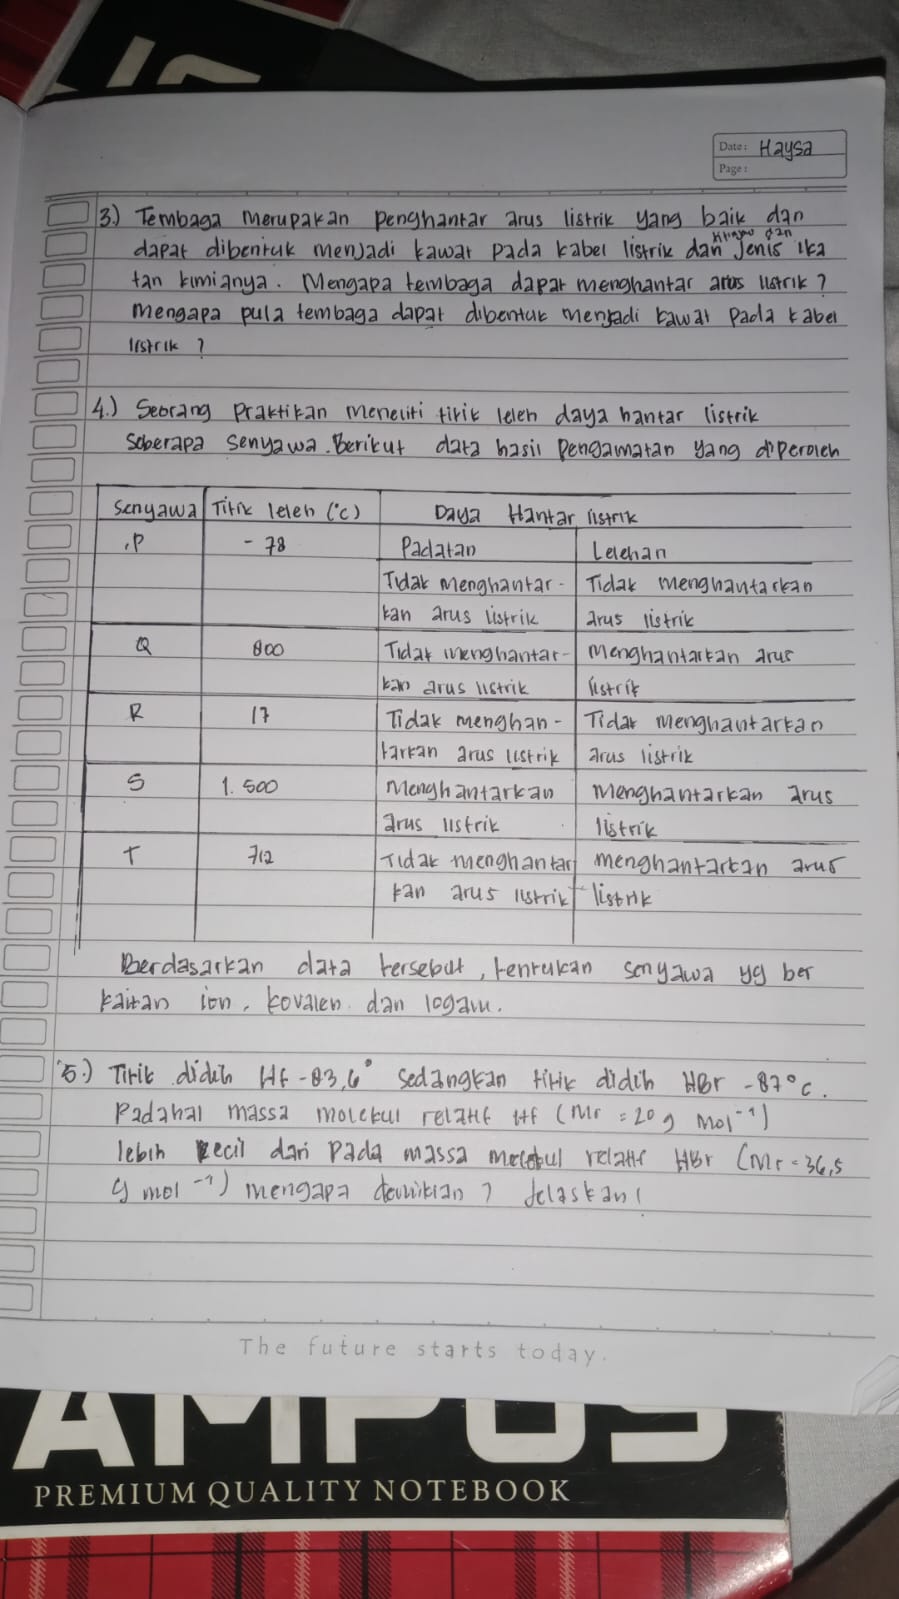 Date: Haysa
Page:
3.) Tembaga merupakan penghantar arus listrik yang baik dan
dapat dibentuk menjadi kawat pada kabel listrik dan jenis ika
tan kimianya. Mengapa tembaga dapat menghantar arus listrik ?
Mengapa pula tembaga dapat dibentuk menjadi kawat pada kabel
listrik ?
4.) Seorang Praktikan meneliti titik leleh daya hantar listrik
Seberapa senyawa. Berikut data hasil pengamatan yang diperoleh
Senyawa Titik leleh (°C) Daya Hantar listrik
P - 78 Padatan Lelehan
Tidak menghantar- Tidak menghantarkan
kan arus listrik arus listrik
Q 800 Tidak menghantar- menghantarkan arus
kan arus listrik listrik
R 17 Tidak menghan- Tidak menghantarkan
tarkan arus listrik arus listrik
S 1.500 Menghantarkan menghantarkan arus
arus listrik listrik
T 712 Tidak menghantar menghantarkan arus
kan arus listrik listrik
Berdasarkan data tersebut, tentukan senyawa yg ber
kaitan ion, kovalen dan logam.
5.) Titik didih Hf -83,6° sedangkan titik didih HBr -87°C.
Padahal massa molekul relatif Hf (Mr = 20 g Mol⁻¹)
lebih kecil dari pada massa molekul relatif HBr (Mr = 36,5
g mol⁻¹) mengapa demikian ? Jelaskan!
The future starts today.
AMPUS
PREMIUM QUALITY NOTEBOOK